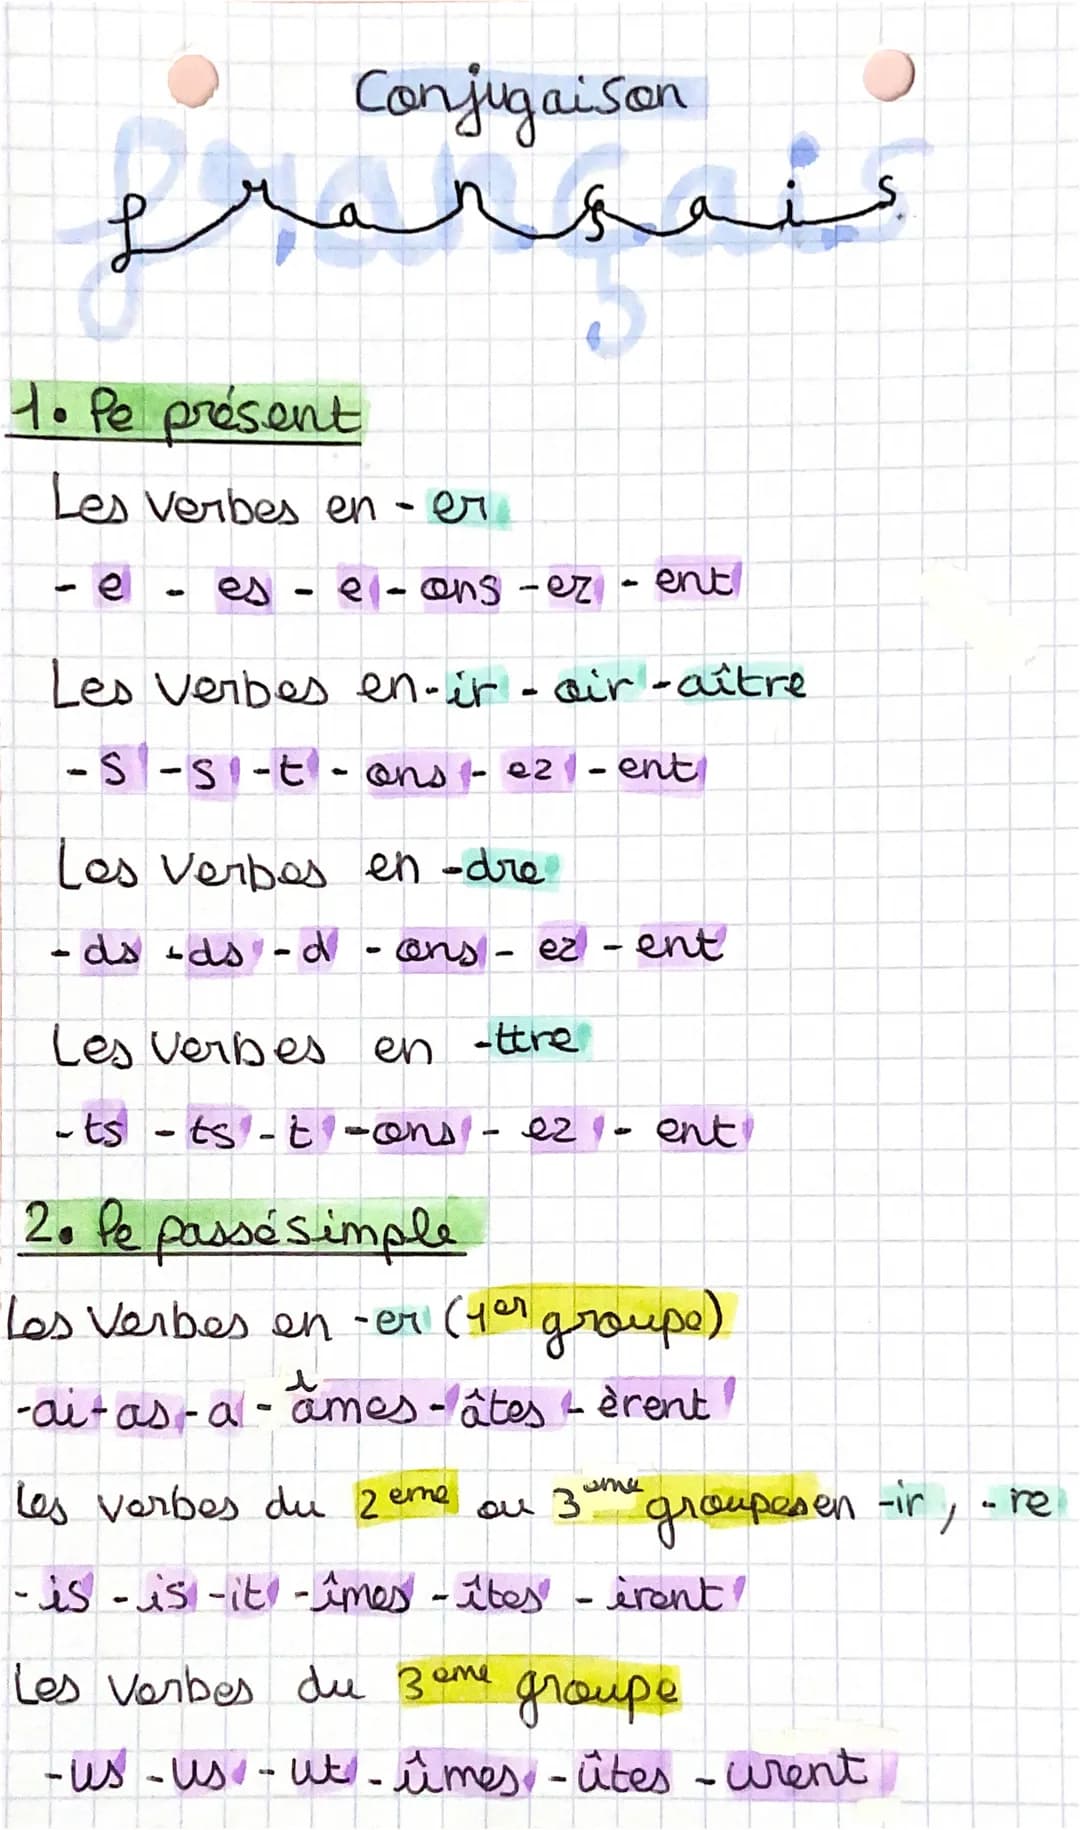 Conjugaison
français
1. Le présent
Les verbes en - er
- e - es - e - ons - ez - ent
Les verbes en -ir - oir -aître
- s - s - t - ons - ez - ent
Les verbes en -dre
- ds - ds - d - ons - ez - ent
Les verbes en -ttre
- ts - ts - t - ons - ez - ent
2. Le passé simple
Les verbes en -er (1er groupe)
-ai - as - a - âmes - âtes - èrent
Les verbes du 2eme ou 3eme groupes en -ir, -re
- is - is - it - îmes - îtes - irent
Les verbes du 3eme groupe
- us - us - ut - ûmes - ûtes - urent